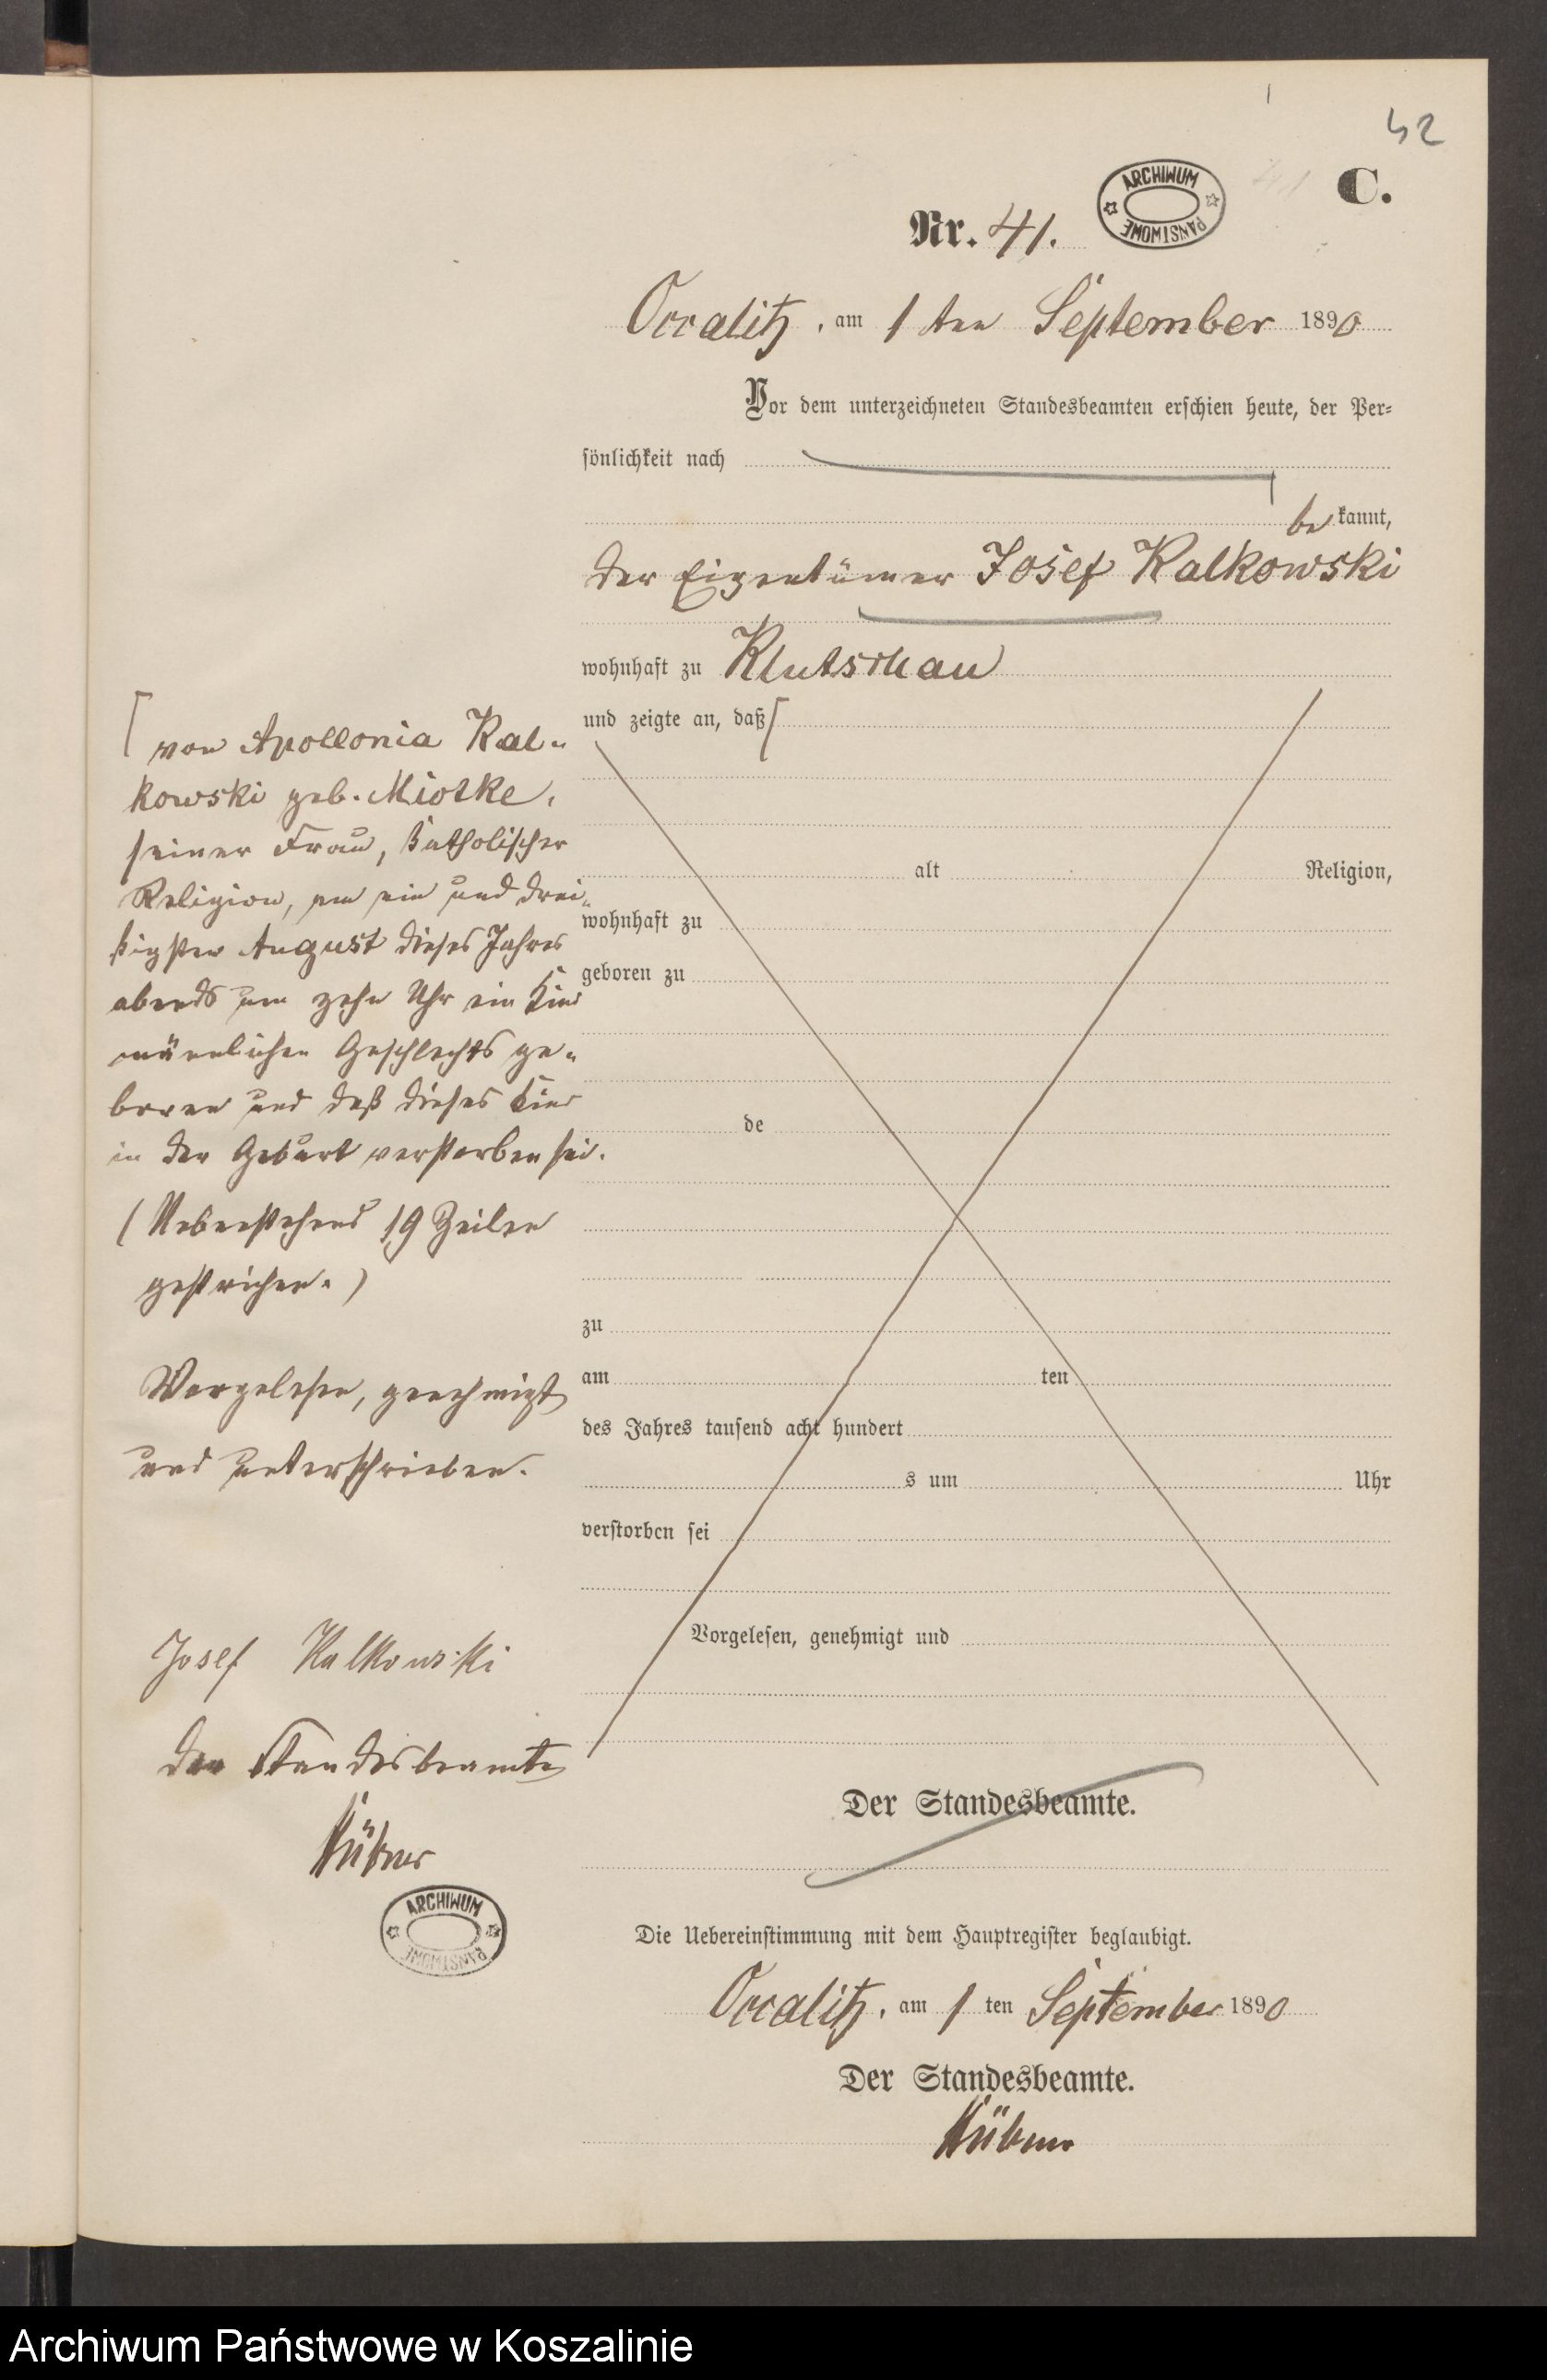 42
C.
ARCHIWUM
PAŃSTWOWE
Nr. 41.
Occalitz, am 1ten September 1890
Vor dem unterzeichneten Standesbeamten erschien heute, der Per=
sönlichkeit nach
bekannt,
der Eigentümer Josef Kalkowski
wohnhaft zu Klutschau
und zeigte an, daß [
[ von Apollonia Kal-
kowski geb. Miotke,
seiner Frau, katholischer
Religion, am ein und drei-
ßigsten August dieses Jahres
abends um zehn Uhr ein Kind
männlichen Geschlechts ge-
boren und daß dieses Kind
in der Geburt verstorben sei.
(Nebenstehend 19 Zeilen
gestrichen.)
Vorgelesen, genehmigt
und unterschrieben.
Josef Kalkowski
Der Standesbeamte
Hübner
ARCHIWUM
PAŃSTWOWE
alt Religion,
wohnhaft zu
geboren zu
de
zu
am ten
des Jahres tausend acht hundert
s um Uhr
verstorben sei
Vorgelesen, genehmigt und
Der Standesbeamte.
Die Uebereinstimmung mit dem Hauptregister beglaubigt.
Occalitz, am 1 ten September 1890
Der Standesbeamte.
Hübner
Archiwum Państwowe w Koszalinie